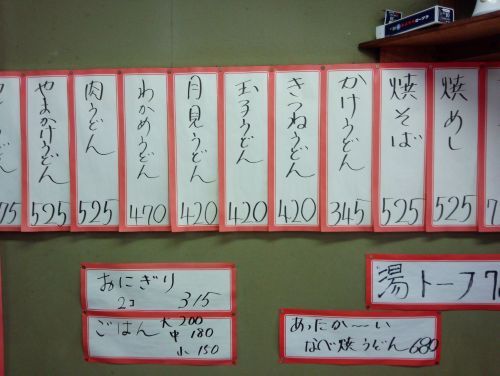 焼めし
525
焼そば
525
かけうどん
345
きつねうどん
420
玉子うどん
420
月見うどん
420
わかめうどん
470
肉うどん
525
やまかけうどん
525
おにぎり
2コ 315
ごはん 大 200
中 180
小 150
湯トーフ
あったか〜い
なべ焼うどん 680